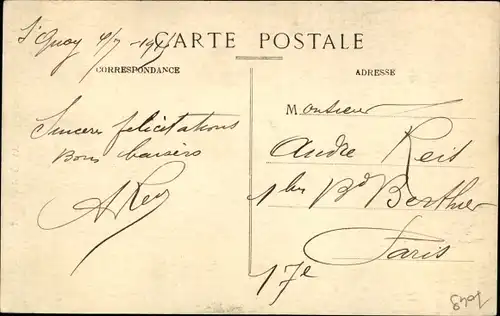 St Quay 4/7 - 1911
CARTE POSTALE
CORRESPONDANCE
ADRESSE
Sincères félicitations
Bons baisers
Monsieur
André Reis
1 bis Bd Berthier
Paris
17e